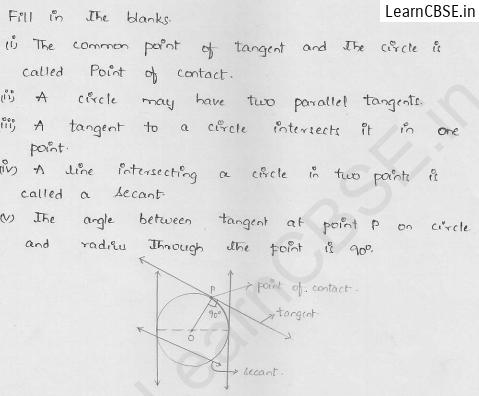 LearnCBSE.in
Fill in the blanks.
(i) The common point of tangent and the circle is
called Point of contact.
(ii) A circle may have two parallel tangents.
(iii) A tangent to a circle intersects it in one
point.
(iv) A line intersecting a circle in two points is
called a secant
(v) The angle between tangent at point P on circle
and radius through the point is 90°.
P
point of contact.
90°
tangent
O
secant.
LearnCBSE.in